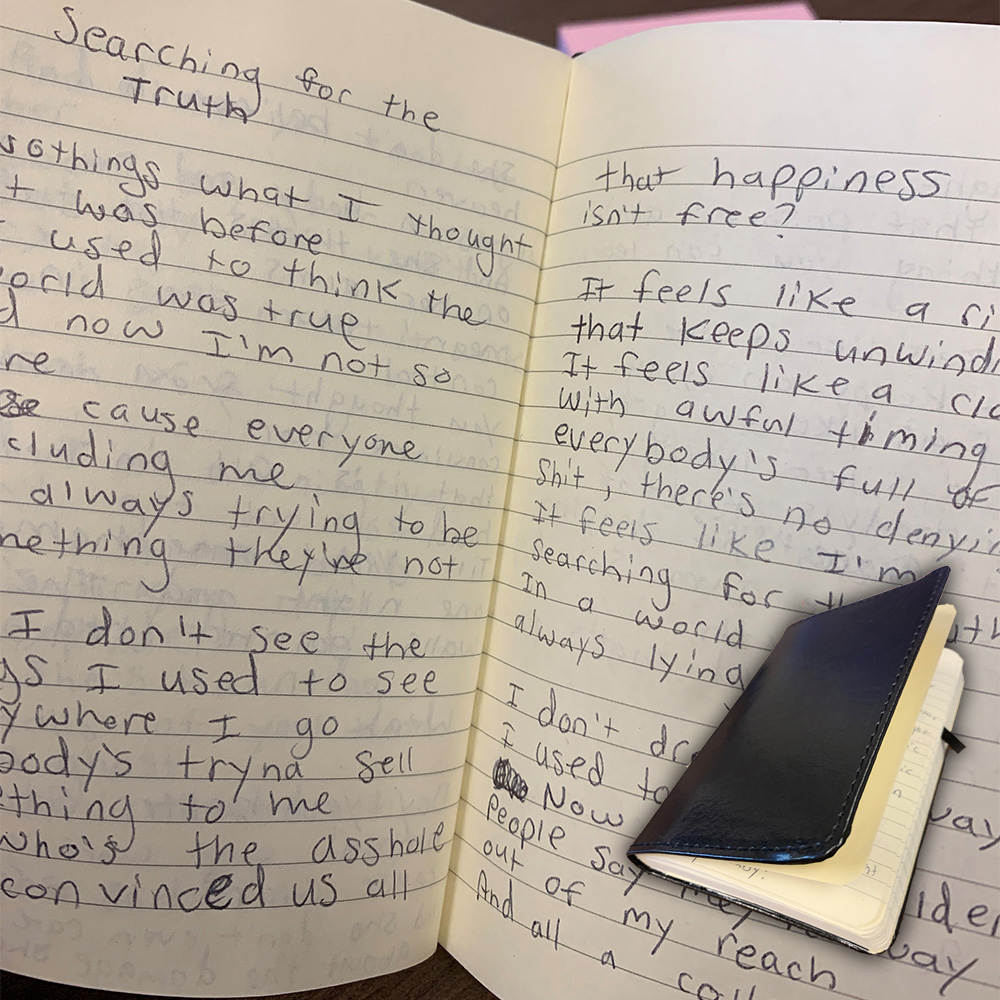 Searching for the
Truth
things what I thought
t was before
used to think the
orld was true
d now I'm not so
re
cause everyone
cluding me
always trying to be
mething they're not
I don't see the
gs I used to see
ywhere I go
body's tryna sell
ething to me
who's the asshole
convinced us all
that happiness
isn't free?
It feels like a ri
that keeps unwindi
It feels like a clo
with awful timing
everybody's full of
Shit, there's no denyin
It feels like I'm
searching for th uth
In a world
always lying
I don't dre
I used to way
Now
People say they
out of my reach way
And all a call